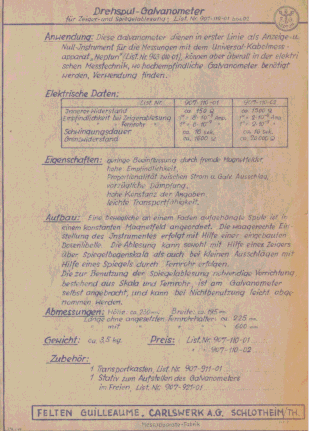 Drehspul-Galvanometer
für Zeiger- und Spiegelablesung; List.Nr. 907-110-01 bis 02
Anwendung: Diese Galvanometer dienen in erster Linie als Anzeige- u.
Null-Instrument für die Messungen mit dem Universal-Kabelmess-
apparat „Neptun" (List.Nr. 903-110-01), können aber überall in der elektri-
schen Messtechnik, wo hochempfindliche Galvanometer benötigt
werden, Verwendung finden.
Elektrische Daten:
List.Nr. 907-110-01 907-110-02
Innerer Widerstand ca.
Empfindlichkeit bei Zeigerablesung
" " Fernrohr
Schwingungsdauer ca. 10 sek. ca. 10 sek.
Grenzwiderstand ca.
Eigenschaften: geringe Beeinflussung durch fremde Magnetfelder
hohe Empfindlichkeit,
Proportionalität zwischen Strom u. Gute Ausschlag,
vorzügliche Dämpfung,
hohe Konstanz der Angaben,
leichte Transportfähigkeit.
Aufbau: Eine bewegliche an einem Faden aufgehängte Spule ist in
einem konstanten Magnetfeld angeordnet. Die waagerechte Ein-
stellung des Instrumentes erfolgt mit Hilfe einer angebauten
Dosenlibelle. Die Ablesung kann sowohl mit Hilfe eines Zeigers
über Spiegelbogenskala als auch bei kleinen Ausschlägen mit
Hilfe eines Spiegels durch Fernrohr erfolgen.
Die zur Benutzung der Spiegelablesung notwendige Vorrichtung
bestehend aus Skala und Fernrohr, ist am Galvanometer
selbst angebracht, und kann bei Nichtbenutzung leicht abge-
nommen werden.
Abmessungen: Höhe: ca. Breite: ca. 195 m.
Länge ohne angesetzten Fernrohrhalter: ca. 225 m.
mit " " " 600 mm
Gewicht: ca. 3,5 kg. Preis: List.Nr. 907-110-01
" " 907-110-02
Zubehör:
1 Transportkasten List.Nr. 907-911-01
1 Stativ zum Aufstellen des Galvanometers
im Freien, List.Nr. 907-921-01
FELTEN GUILLEAUME, CARLSWERK A.G. SCHLOTHEIM/TH.